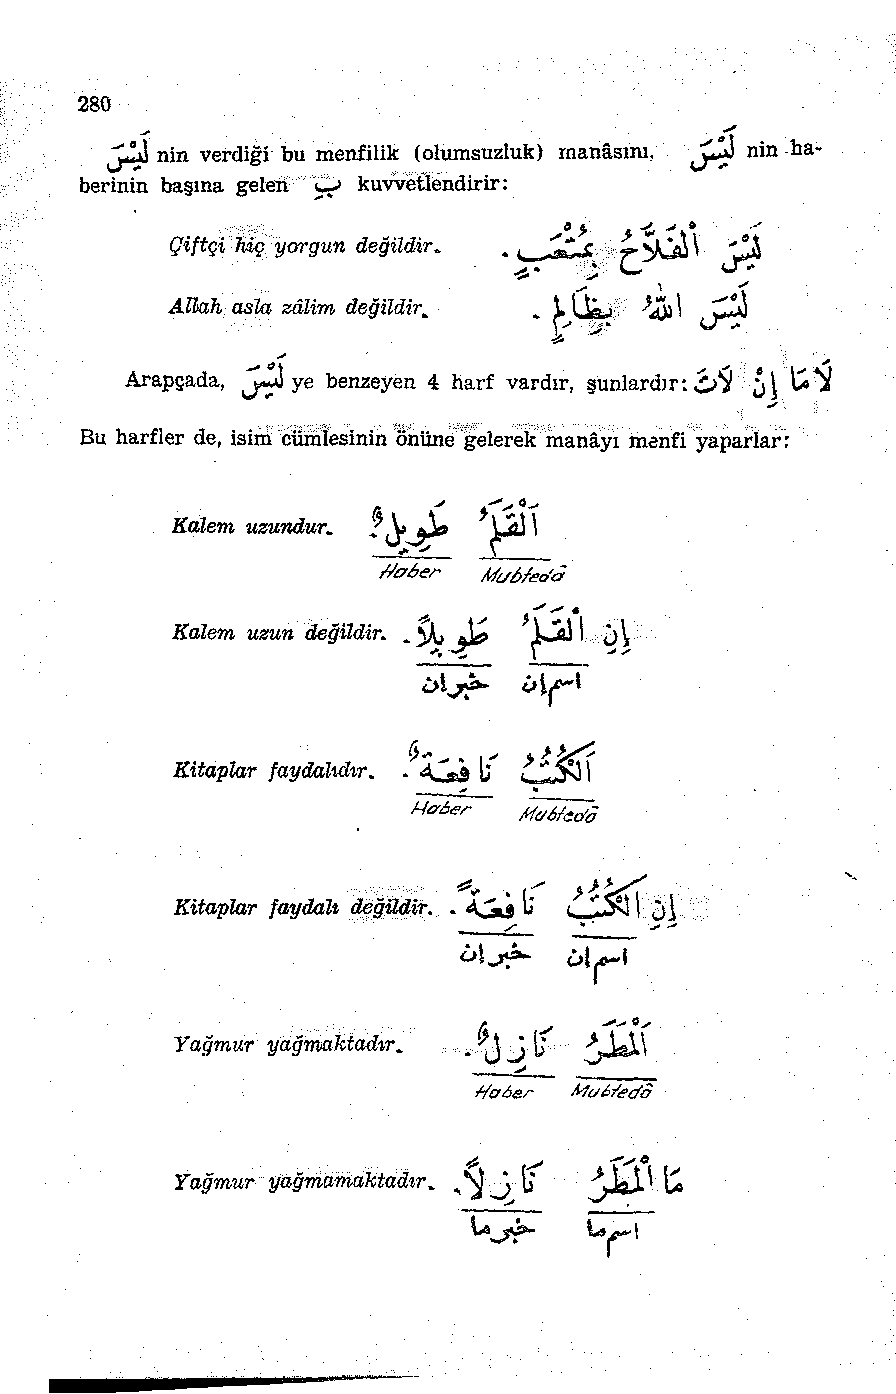 280
لَيْسَ nin verdiği bu menfilik (olumsuzluk) manâsını, لَيْسَ nin ha-
berinin başına gelen بِ kuvvetlendirir:
Çiftçi hiç yorgun değildir. لَيْسَ الْفَلَّاحُ بِمُتْعَبٍ.
Allah asla zâlim değildir. لَيْسَ اللهُ بِظَالِمٍ.
Arapçada, لَيْسَ ye benzeyen 4 harf vardır, şunlardır: لَا مَا إِنْ لَاتَ
Bu harfler de, isim cümlesinin önüne gelerek manâyı menfi yaparlar:
Kalem uzundur. اَلْقَلَمُ طَوِيلٌ.
Haber Mubtedâ
Kalem uzun değildir. إِنِ الْقَلَمُ طَوِيلاً.
اسم إن خبر إن
Kitaplar faydalıdır. اَلْكُتُبُ نَافِعَةٌ.
Haber Mubtedâ
Kitaplar faydalı değildir. إِنِ الْكُتُبُ نَافِعَةً.
اسم إن خبر إن
Yağmur yağmaktadır. اَلْمَطَرُ نَازِلٌ.
Haber Mubtedâ
Yağmur yağmamaktadır. مَا الْمَطَرُ نَازِلاً.
اسم ما خبر ما